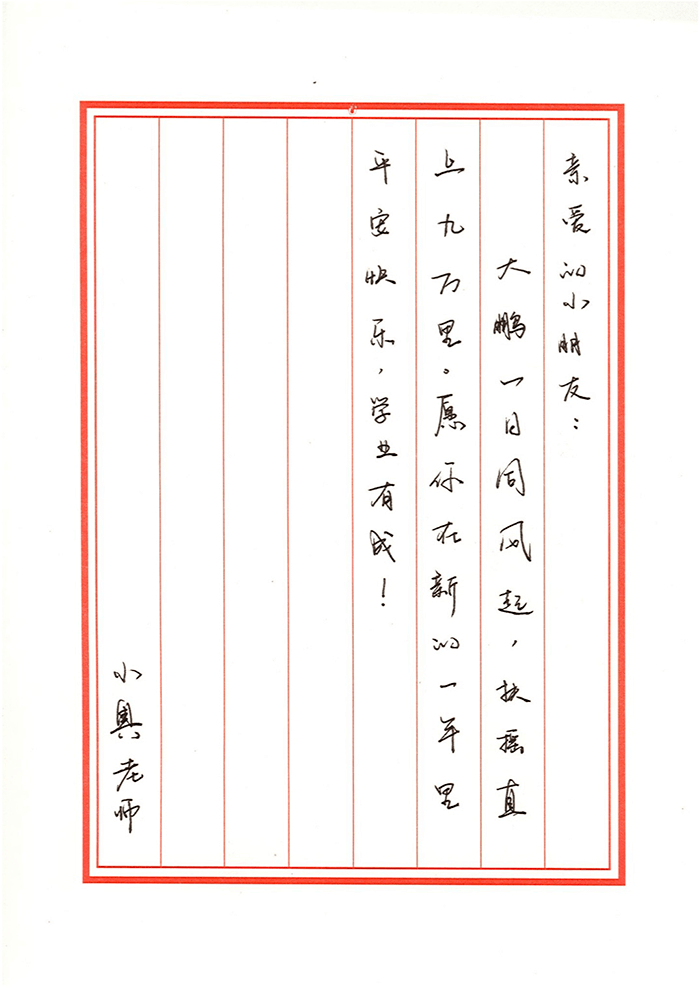 亲爱的小朋友：
大鹏一日同风起，扶摇直
上九万里。愿你在新的一年里
平安快乐，学业有成！
小奥老师